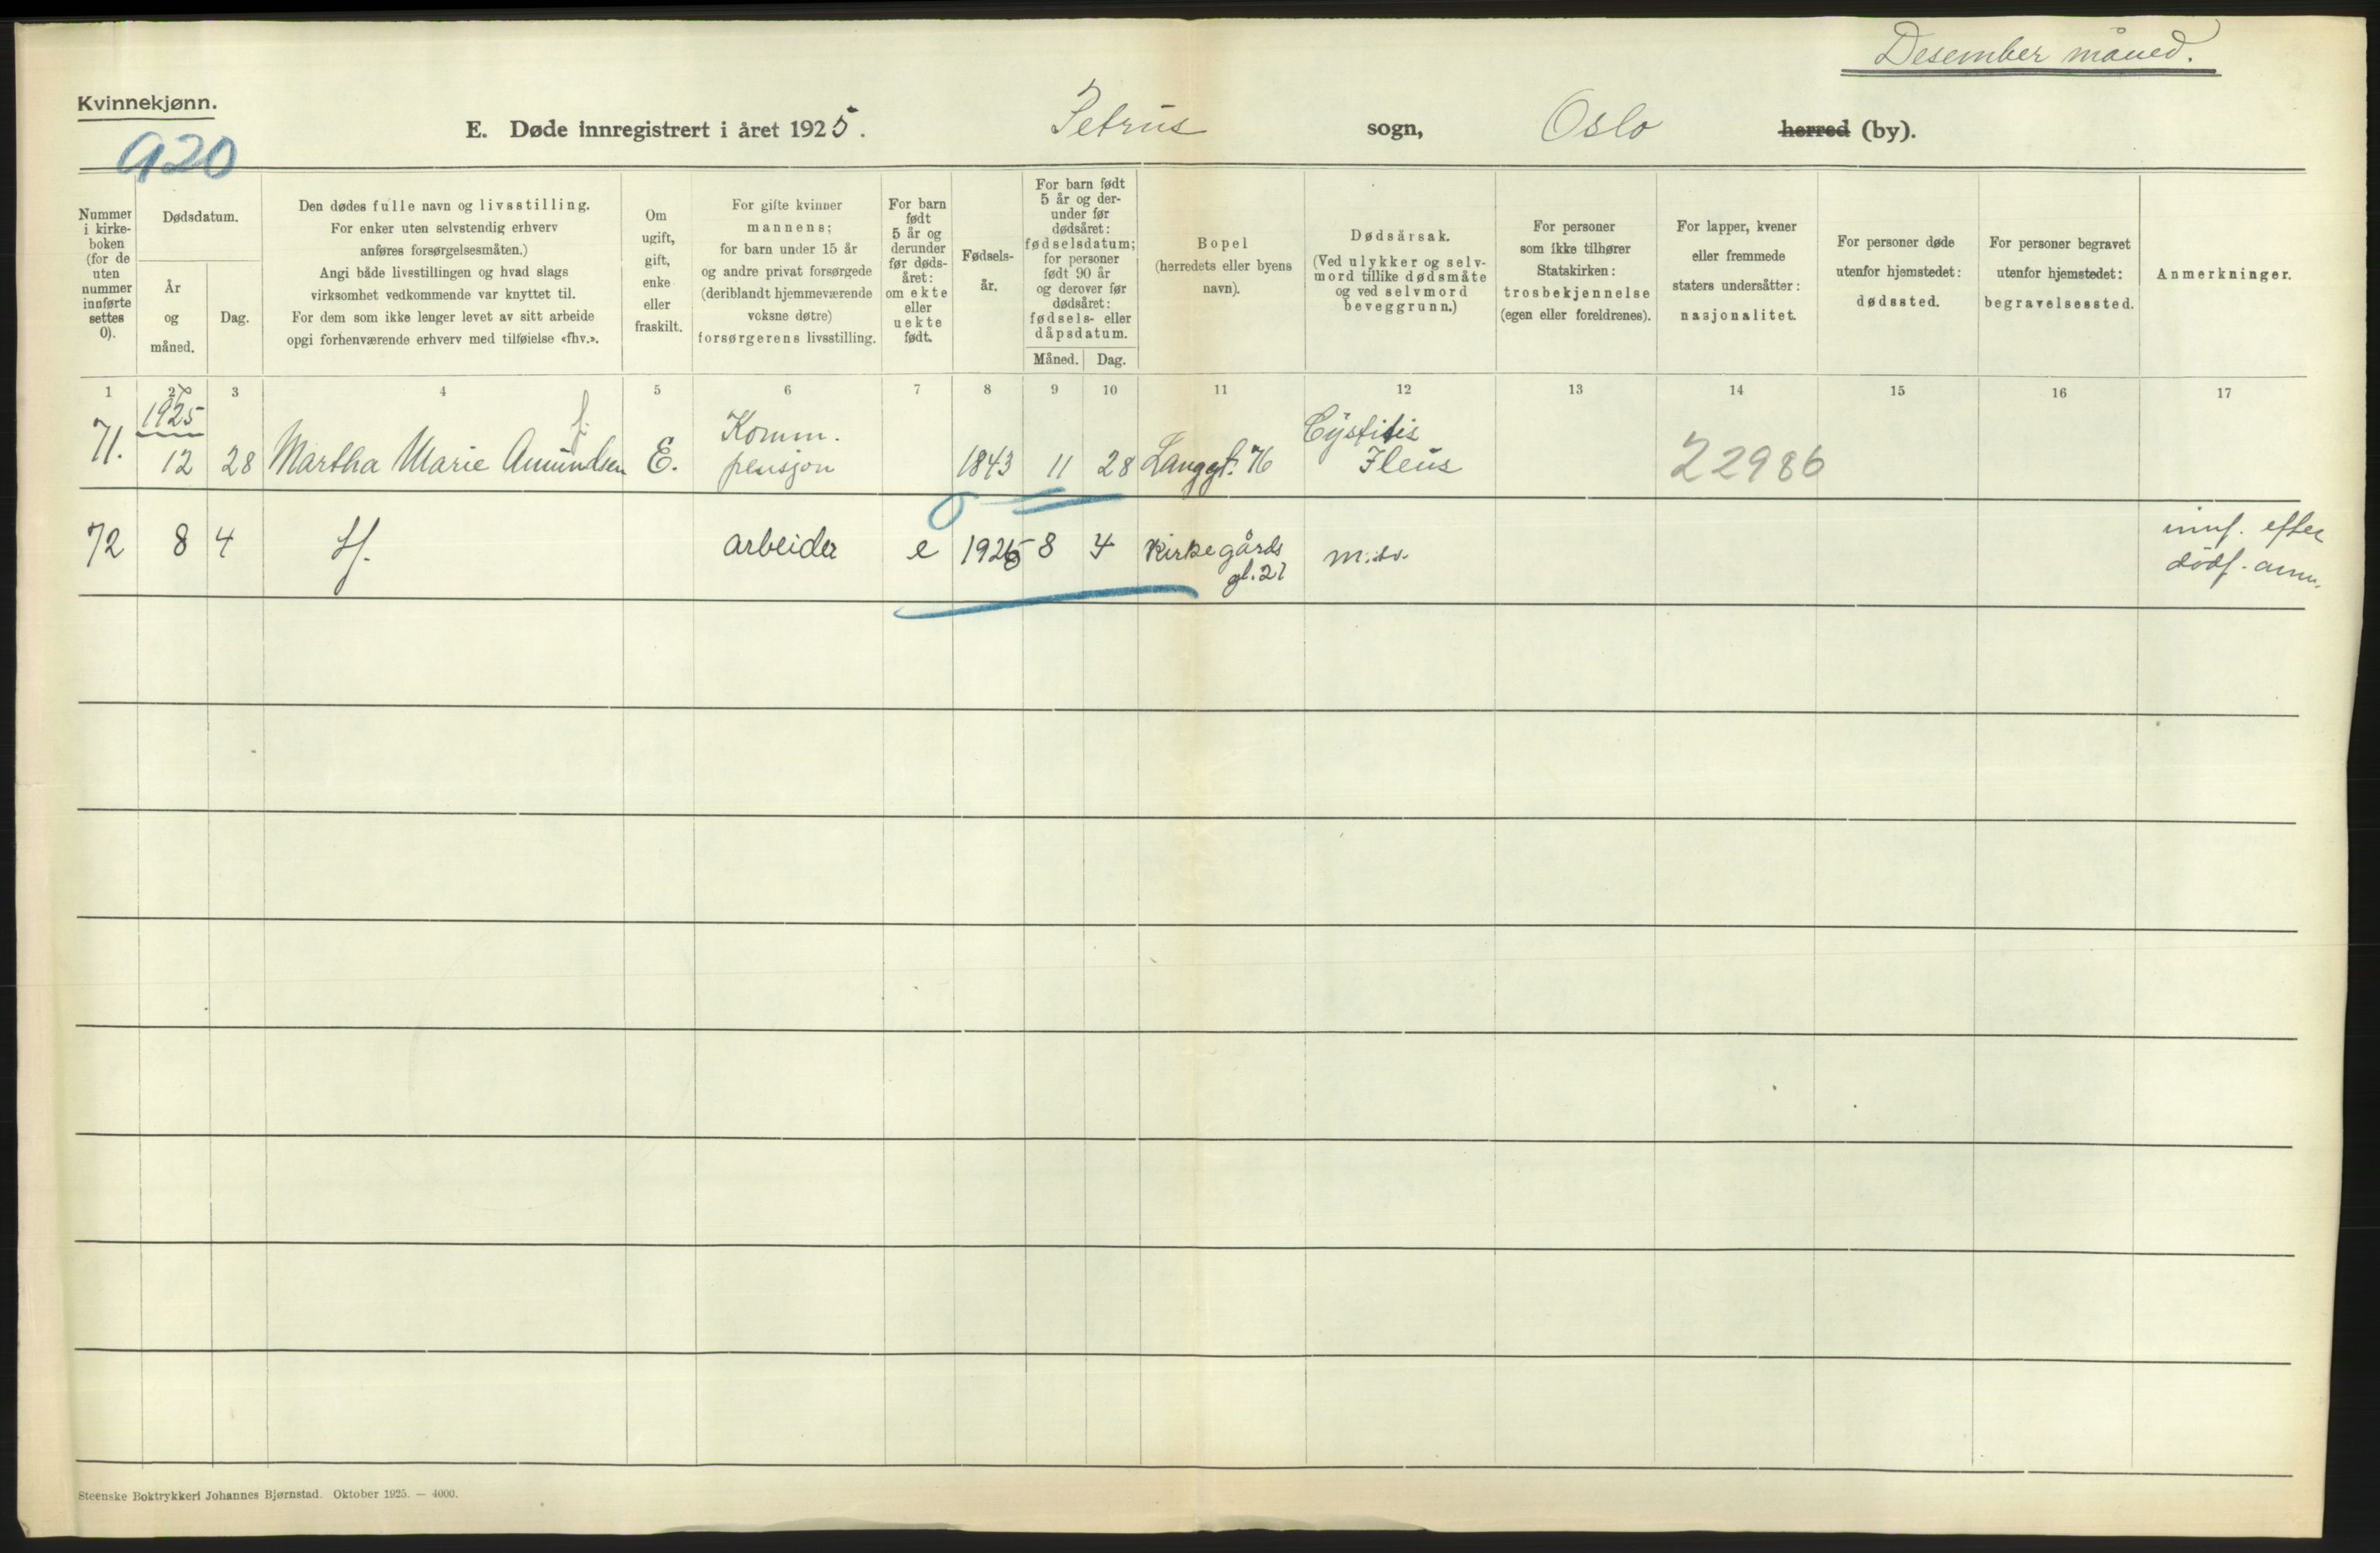 Desember måned.
Kvinnekjønn.
E. Døde innregistrert i året 1925. Petrus sogn, Oslo herred (by).
920
Nummer
i kirke-
boken
(for de
uten
nummer
innførte
settes
0).
Dødsdatum.
År
og
måned.
Dag.
Den dødes fulle navn og livsstilling.
For enker uten selvstendig erhverv
anføres forsørgelsesmåten.)
Angi både livsstillingen og hvad slags
virksomhet vedkommende var knyttet til.
For dem som ikke lenger levet av sitt arbeide
opgi forhenværende erhverv med tilføielse «fhv.».
Om
ugift,
gift,
enke
eller
fraskilt.
For gifte kvinner
mannens;
for barn under 15 år
og andre privat forsørgede
(deriblandt hjemmeværende
voksne døtre)
forsørgerens livsstilling.
For barn
født
5 år og
derunder
før døds-
året:
om ekte
eller
uekte
født.
Fødsels-
år.
For barn født
5 år og der-
under før
dødsåret:
fødselsdatum;
for personer
født 90 år
og derover før
dødsåret:
fødsels- eller
dåpsdatum.
Måned. Dag.
Bopel
(herredets eller byens
navn).
Dødsårsak.
(Ved ulykker og selv-
mord tillike dødsmåte
og ved selvmord
beveggrunn.)
For personer
som ikke tilhører
Statskirken:
trosbekjennelse
(egen eller foreldrenes).
For lapper, kvener
eller fremmede
staters undersåtter:
nasjonalitet.
For personer døde
utenfor hjemstedet:
dødssted.
For personer begravet
utenfor hjemstedet:
begravelsessted.
Anmerkninger.
1 2 3 4 5 6 7 8 9 10 11 12 13 14 15 16 17
1925
f. Komm. Cystitis
71. 12 28 Martha Marie Amundsen E. pensjon 1843 11 28 Langgt. 76 Ileus 22986
72 8 4 arbeider e 1925 8 4 Kirkegårds m.sv. innf. efter
gt. 21 dødf. anm.
Steenske Boktrykkeri Johannes Bjørnstad. Oktober 1925. — 4000.